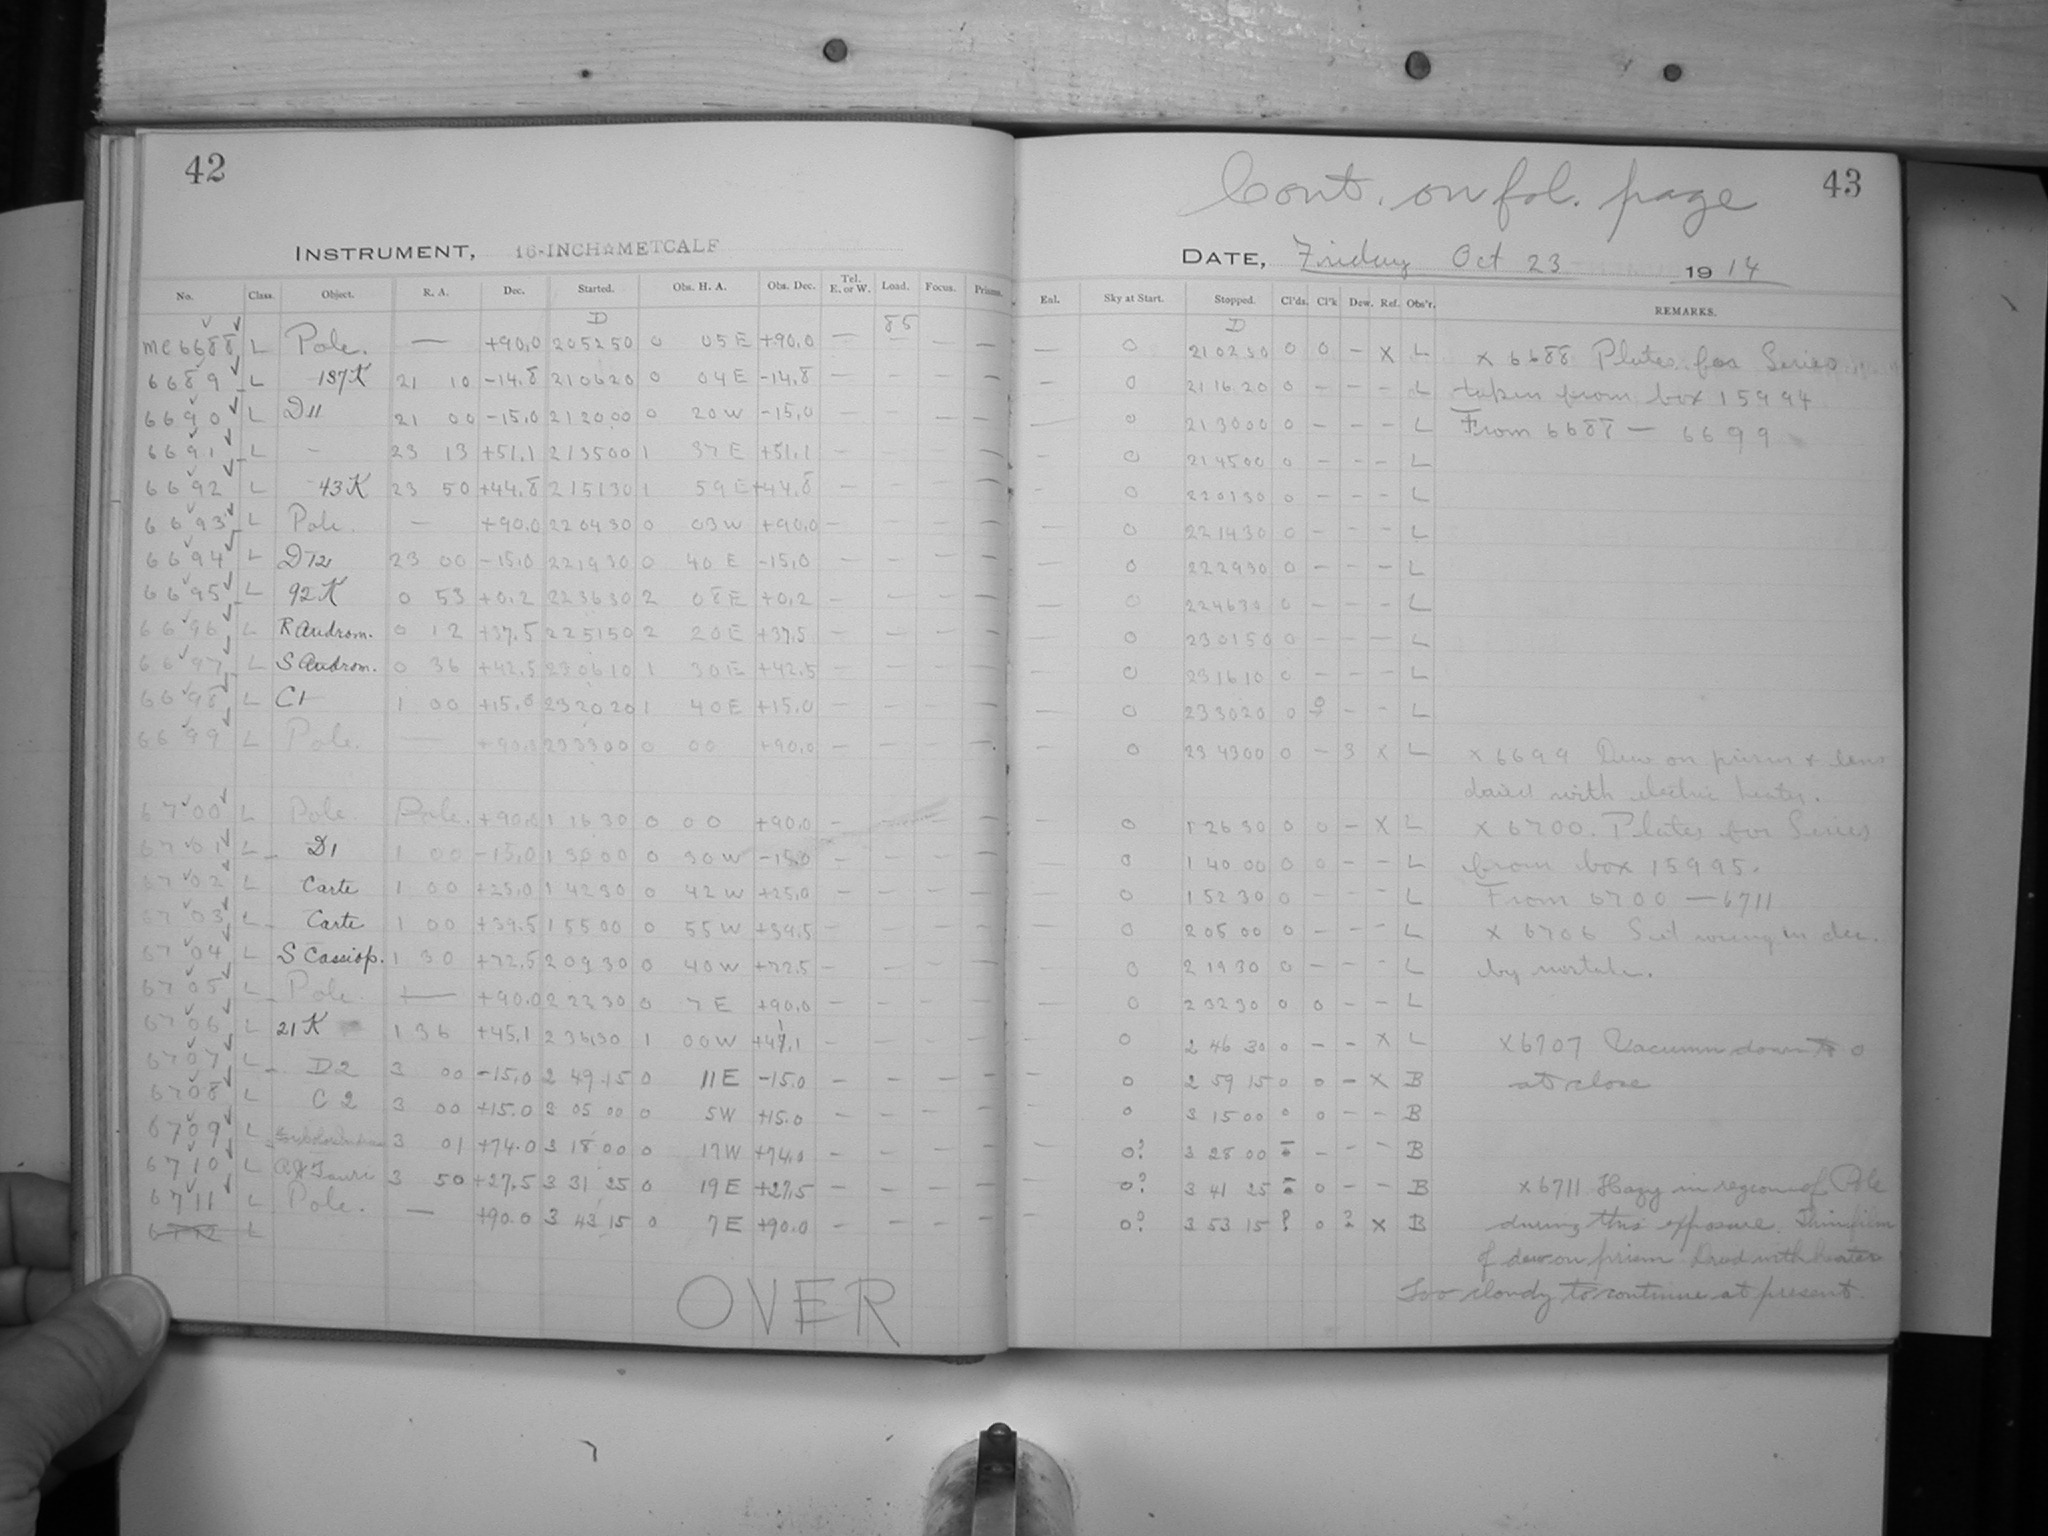 42
INSTRUMENT, 16-INCH METCALF
No. Class. Object. R. A. Dec. Started. Obs. H. A. Obs. Dec. Tel. E. or W. Load. Focus. Prisms.
D 85
MC 6688 L Pole. — +90.0 205250 0 05 E +90.0 —
6689 L 187K 21 10 -14.8 210620 0 04 E -14.8 — — — —
6690 L D11 21 00 -15.0 212000 0 20 W -15.0 — — — —
6691 L - 23 13 +51.1 213500 1 37 E +51.1 — — — —
6692 L 43K 23 50 +44.8 215130 1 59 E +44.8 — — — —
6693 L Pole. — +90.0 220430 0 03 W +90.0 — — — —
6694 L D12 23 00 -15.0 221930 0 40 E -15.0 — — — —
6695 L 92K 0 53 +0.2 223630 2 08 E +0.2 — — — —
6696 L R Androm. 0 12 +37.5 225150 2 20 E +37.5 — — — —
6697 L S Androm. 0 36 +42.5 230610 1 30 E +42.5 — — — —
6698 L C1 1 00 +15.0 232020 1 40 E +15.0 — — — —
6699 L Pole. — +90.0 233300 0 00 +90.0 — — — —
6700 L Pole. Pole. +90.0 1 16 30 0 00 +90.0 — — — —
6701 L D1 1 00 -15.0 1 30 00 0 30 W -15.0 — — — —
6702 L Carte 1 00 +25.0 1 42 30 0 42 W +25.0 — — — —
6703 L Carte 1 00 +39.5 1 55 00 0 55 W +39.5 — — — —
6704 L S Cassiop. 1 30 +72.5 2 09 30 0 40 W +72.5 — — — —
6705 L Pole. — +90.0 2 22 30 0 7 E +90.0 — — — —
6706 L 21K 1 36 +45.1 2 36 30 1 00 W — — — —
6707 L D2 3 00 -15.0 2 49 15 0 11 E -15.0 — — — —
6708 L C2 3 00 +15.0 3 05 00 0 5 W +15.0 — — — —
6709 L 3 01 +74.0 3 18 00 0 17 W +74.0 — — — —
6710 L Tauri 3 50 +27.5 3 31 25 0 19 E +27.5 — — — —
6711 L Pole. — +90.0 3 43 15 0 7 E +90.0 — — — —
6712 L
OVER
43
Cont. on fol. page
DATE, Friday Oct 23 1914
Eal. Sky at Start. Stopped. Cl'ds. Cl'k Dew. Ref. Obs'r. REMARKS.
D
— 0 210250 0 0 - X L x 6688 Plates for Series
— 0 211620 0 - - - L taken from box 15994
— 0 213000 0 - - - L From 6688 — 6699
— 0 214500 0 - - - L
- 0 220130 0 - - - L
— 0 221430 0 - - - L
— 0 222930 0 - - - L
— 0 224630 0 - - - L
0 230150 0 - - - L
0 231610 0 - - - L
— 0 233020 0 - - L
— 0 234300 0 - 3 X L x 6699 Dew on prism & lens
dried with electric heater.
— 0 1 26 30 0 0 - X L x 6700. Plates for Series
— 0 1 40 00 0 0 - - L from box 15995.
— 0 1 52 30 0 - - - L From 6700 — 6711
— 0 2 05 00 0 - - - L x 6706 Set wrong in dec.
0 2 19 30 0 - - - L by mistake.
— 0 2 32 30 0 0 - - L
0 2 46 30 0 - - X L x 6707 Vacuum down to 0
— 0 2 59 15 0 0 - X B at close
— 0 3 15 00 0 0 - - B
— 0? 3 28 00 - - - B
— 0? 3 41 25 0 - - B x 6711 Hazy in region of Pole
— 0? 3 53 15 ? 0 2 X B during this exposure. Thin film
of dew on prism. Dried with heater
Too cloudy to continue at present.